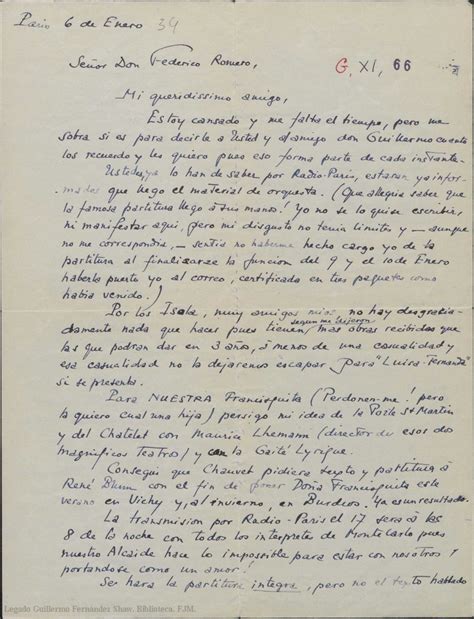 Paris 6 de Enero 34
Señor Don Federico Romero,
G. XI, 66
Mi queridissimo amigo,
Estoy cansado y me falta el tiempo, pero me
sobra si es para decirle a Usted y al amigo don Guillermo cuanto
los recuerdo y les quiero pues eso forma parte de cada instante.
Ustedes ya lo han de saber por Radio-Paris, estaran ya infor-
mados que llego el material de orquesta. (Que allegria saber que
la famosa partitura llego a sus manos! Yo no se lo quise escribir,
ni manifestar aqui, pero mi disgusto no tenia limites y — aunque
no me correspondia, — sentia no haberme hecho cargo yo de la
partitura al finalizarze la funcion del 9 y el 10 de Enero
haberla puerto yo al correo, certificada en tres paquetes como
habia venido.)
Por los Isola, muy amigos mios, no hay desgracia-
damente nada que hacer pues tienen, segun me dijeron, mas obras recibidas que
las que podran dar en 3 años, à menos de una casualidad y
esa casualidad no la dejaremos escapar para "Luisa-Fernanda"
si se presenta.
Para NUESTRA Francisquita (Perdonen-me! pero
la quiero cual una hija) persigo mi idea de la Porte St Martin
y del Chatelet con Maurice Lhemann (director de esos dos
magnificos Teatros) y con la Gaité Lyrique.
Consegui que Chauvet pidiera texto y partitura à
René Blum con el fin de poner Doña Francisquita este
verano en Vichy y, al invierno, en Burdeos. Ya es un resultado.
La transmision por Radio-Paris el 17 sera à las
8 de la noche con todos los interpretes de Montecarlo pues
nuestro Alcaide hace lo imposible para estar con nosotros y
portandose como un amor!
Se hara la partitura integra, pero no el texto hablado
Legado Guillermo Fernández Shaw. Biblioteca. FJM.